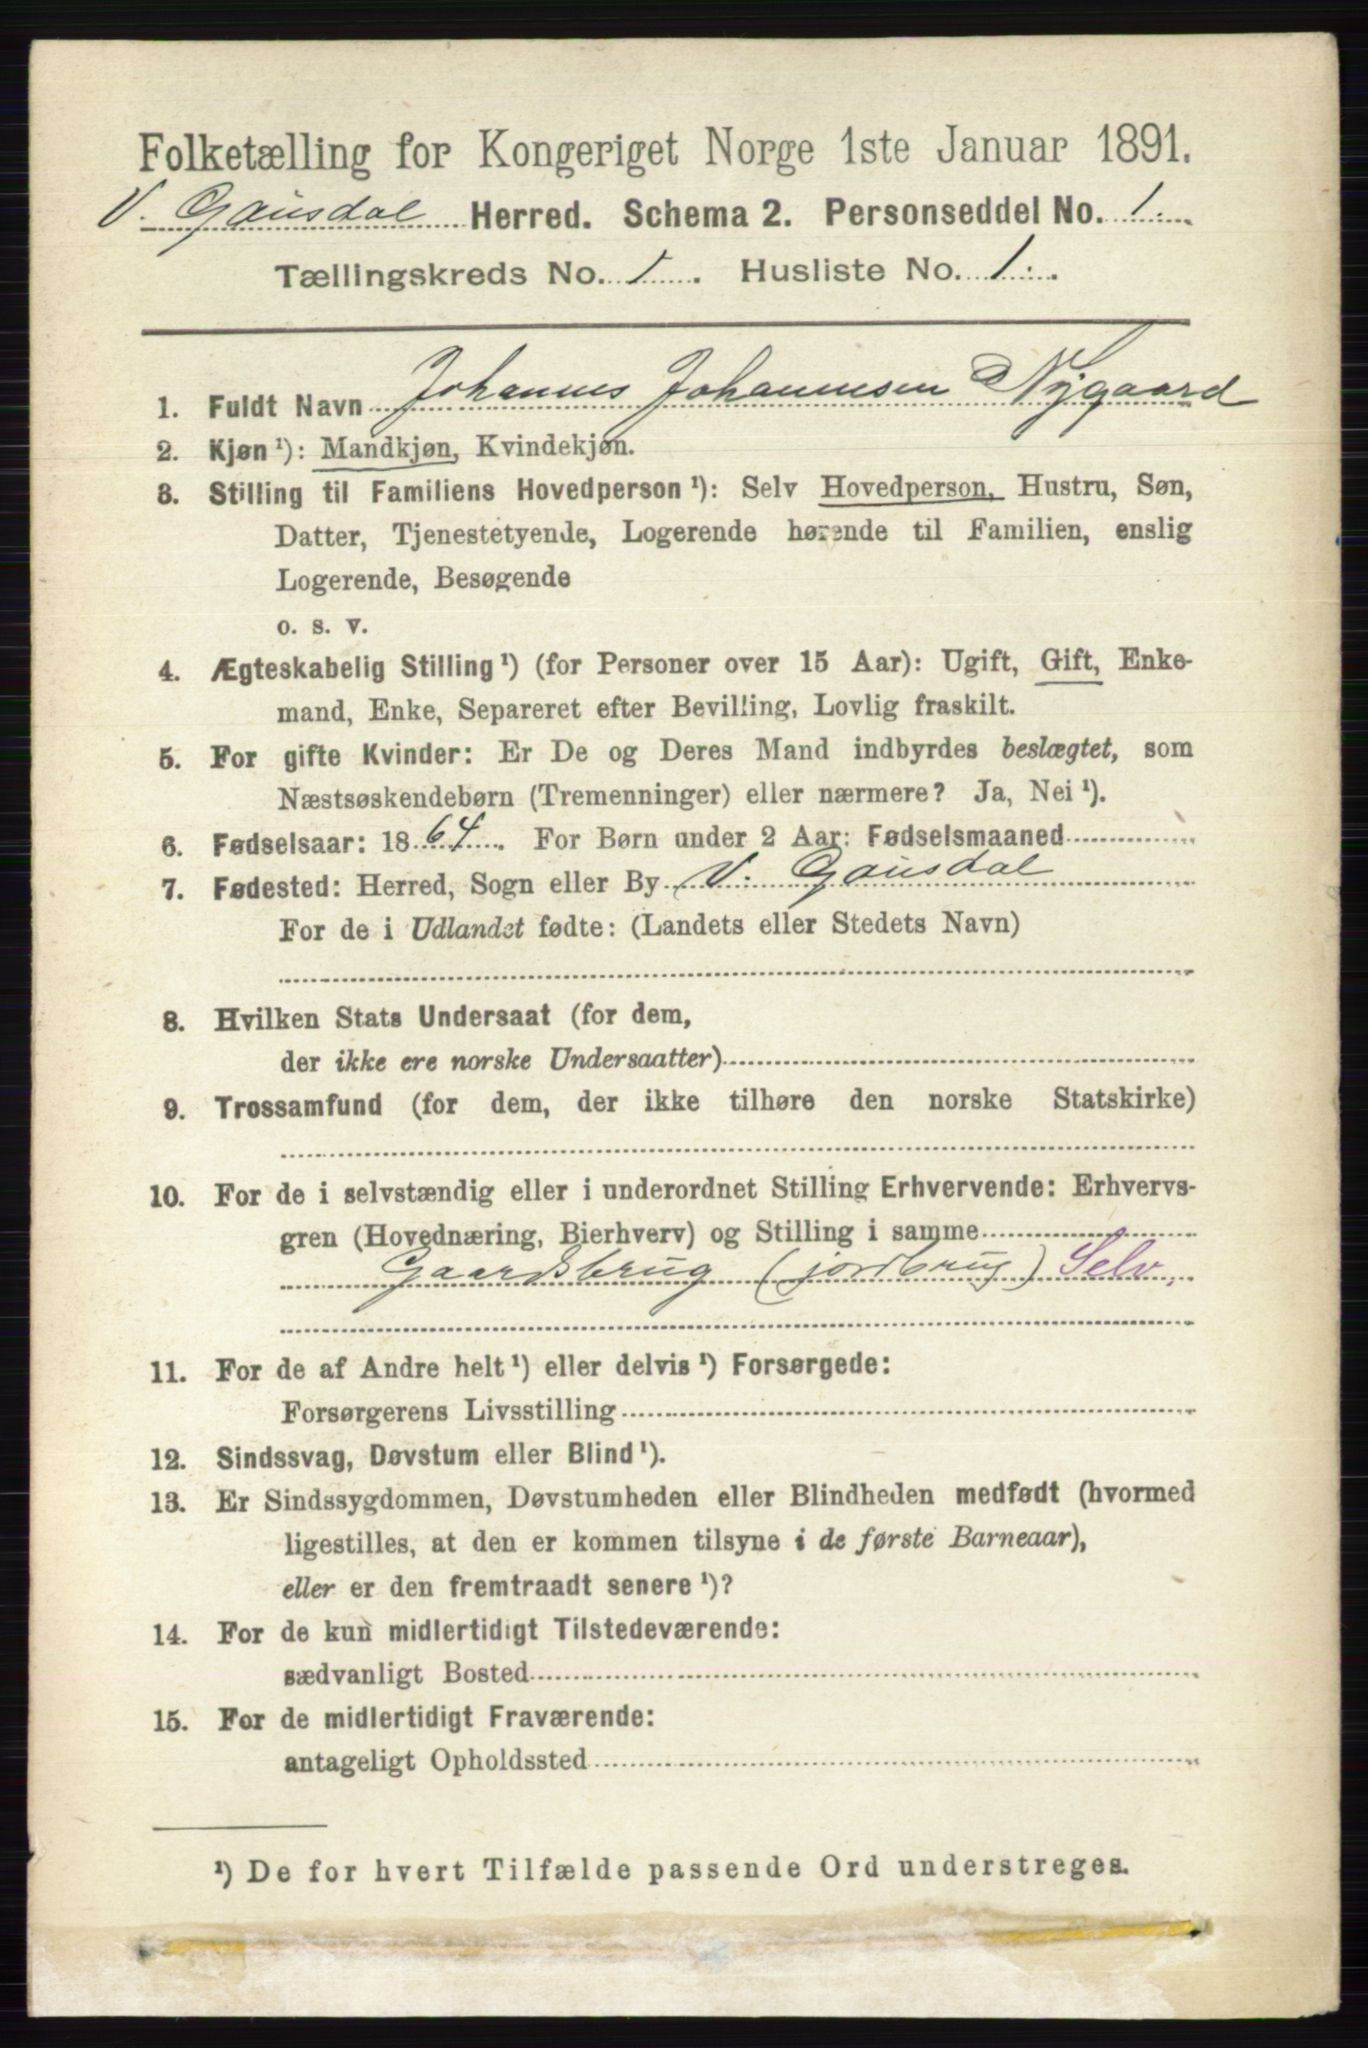 Folketælling for Kongeriget Norge 1ste Januar 1891.
V. Gausdal Herred. Schema 2. Personseddel No. 1.
Tællingskreds No. 1. Husliste No. 1.
1. Fuldt Navn Johannes Johannesen Nygaard
2. Kjøn ¹): Mandkjøn, Kvindekjøn.
3. Stilling til Familiens Hovedperson ¹): Selv Hovedperson, Hustru, Søn,
Datter, Tjenestetyende, Logerende hørende til Familien, enslig
Logerende, Besøgende
o. s. v.
4. Ægteskabelig Stilling ¹) (for Personer over 15 Aar): Ugift, Gift, Enke-
mand, Enke, Separeret efter Bevilling, Lovlig fraskilt.
5. For gifte Kvinder: Er De og Deres Mand indbyrdes beslægtet, som
Næstsøskendebørn (Tremenninger) eller nærmere? Ja, Nei ¹).
6. Fødselsaar: 1864. For Børn under 2 Aar: Fødselsmaaned
7. Fødested: Herred, Sogn eller By V. Gausdal
For de i Udlandet fødte: (Landets eller Stedets Navn)
8. Hvilken Stats Undersaat (for dem,
der ikke ere norske Undersaatter)
9. Trossamfund (for dem, der ikke tilhøre den norske Statskirke)
10. For de i selvstændig eller i underordnet Stilling Erhvervende: Erhvervs-
gren (Hovednæring, Bierhverv) og Stilling i samme
Gaardsbrug (jordbrug) Selv,
11. For de af Andre helt ¹) eller delvis ¹) Forsørgede:
Forsørgerens Livsstilling
12. Sindssvag, Døvstum eller Blind ¹).
13. Er Sindssygdommen, Døvstumheden eller Blindheden medfødt (hvormed
ligestilles, at den er kommen tilsyne i de første Barneaar),
eller er den fremtraadt senere ¹)?
14. For de kun midlertidigt Tilstedeværende:
sædvanligt Bosted
15. For de midlertidigt Fraværende:
antageligt Opholdssted
¹) De for hvert Tilfælde passende Ord understreges.